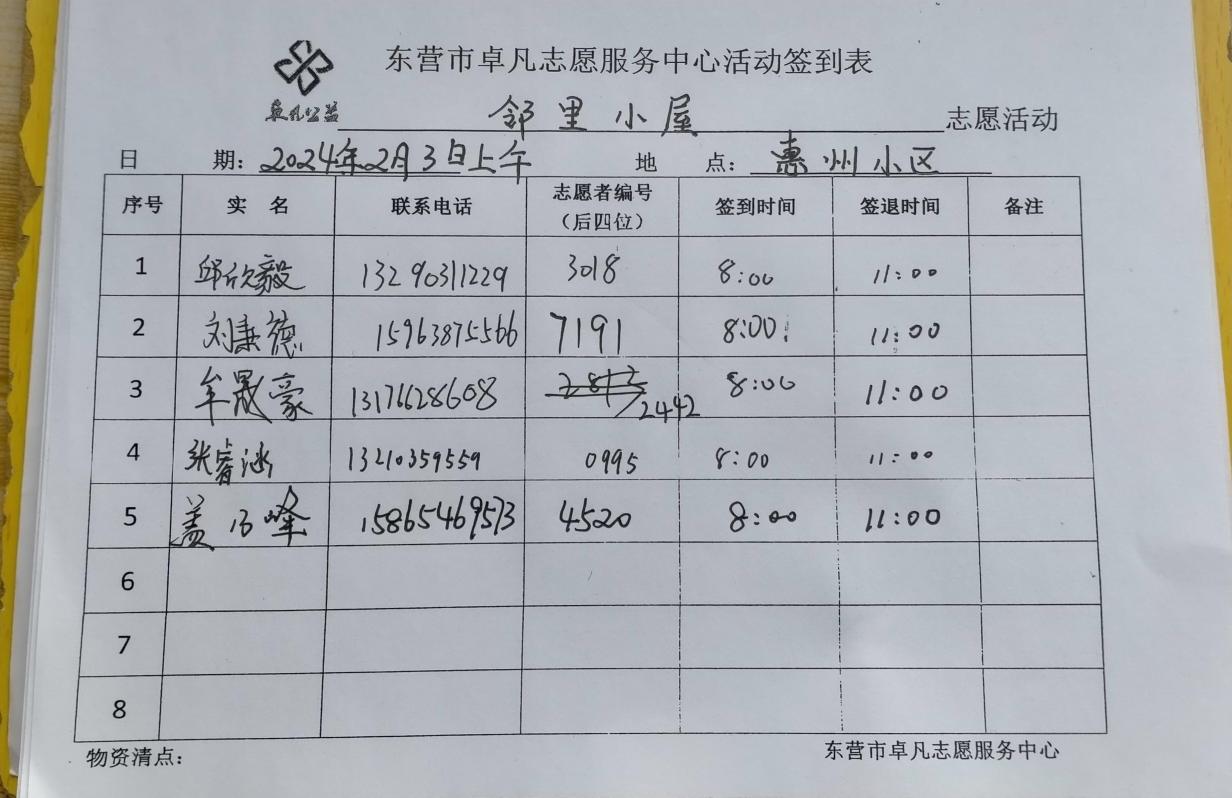 东营市卓凡志愿服务中心活动签到表
卓凡公益 邻里小屋 志愿活动
日 期：2024年2月3日上午 地 点：惠州小区
序号 实 名 联系电话 志愿者编号（后四位） 签到时间 签退时间 备注
1 邱欣毅 13290311229 3018 8:00 11:00
2 刘兼德 15963875566 7191 8:00 11:00
3 牟晟豪 13176628608 2442 8:00 11:00
4 张睿涵 13210359559 0995 8:00 11:00
5 盖 峰 15865469573 4520 8:00 11:00
6
7
8
物资清点： 东营市卓凡志愿服务中心